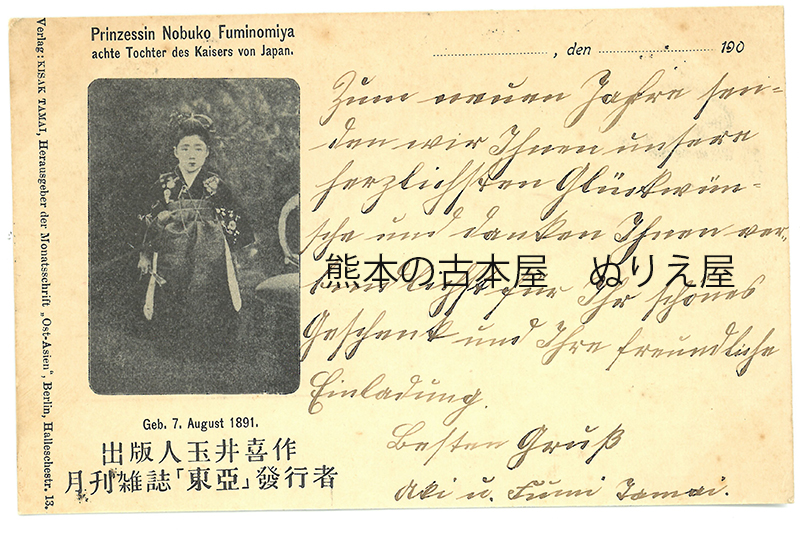 Prinzessin Nobuko Fuminomiya
achte Tochter des Kaisers von Japan.
, den 190
Verlag: KISAK TAMAI, Herausgeber der Monatsschrift „Ost-Asien“, Berlin, Halleschestr. 13.
Zum neuen Jahre sen-
den wir Ihnen unsere
herzlichsten Glückwün-
sche und danken Ihnen ver-
für Ihr schönes
Geschenk und Ihre freundliche
Einladung.
Besten Gruß
Aki u. Fumi Tamai.
熊本の古本屋 ぬりえ屋
Geb. 7. August 1891.
出版人玉井喜作
月刊雑誌「東亞」發行者